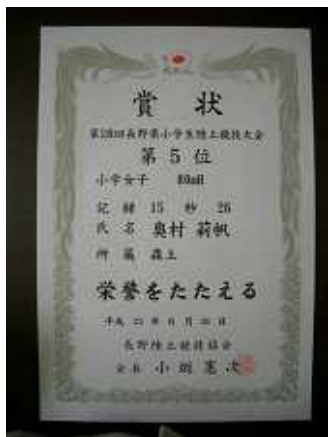 賞状
長野県小学生陸上競技大会
第5位
小学女子 80mH
記録 15秒26
氏名 奥村 莉帆
所属
栄誉をたたえる
平成 年 月 日
長野陸上競技協会
会長 小 憲次